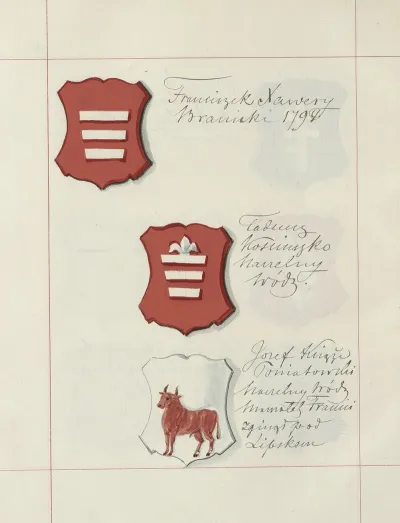 Franciszek Xawery
Branicki 1794
Tadeusz
Kościuszko
Naczelny
Wódz.
Józef Książe
Poniatowski
Naczelny Wódz
Marszałek Francii
zginął pod
Lipskiem